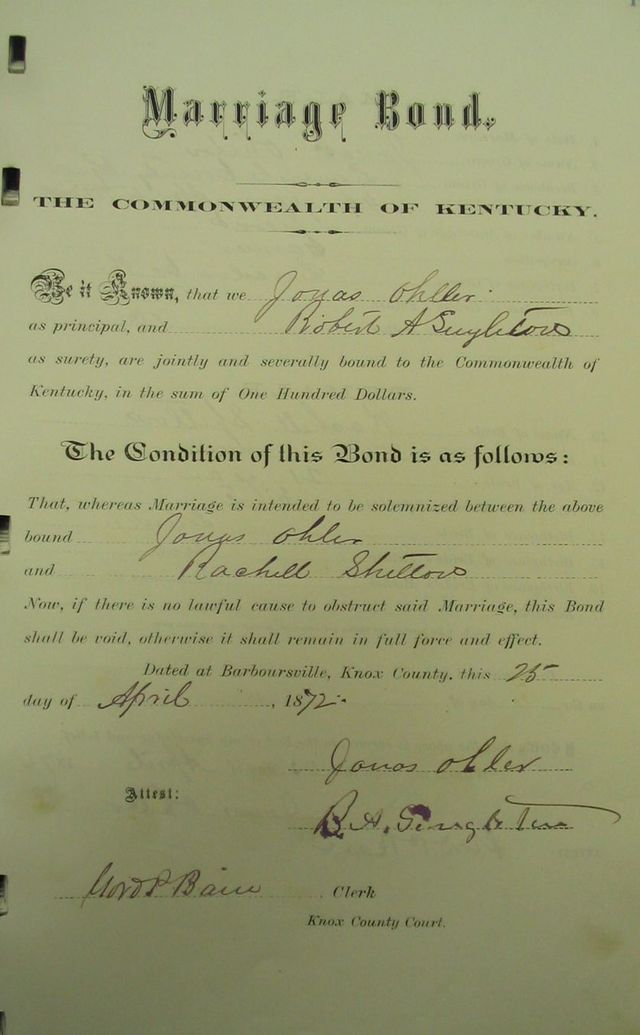 Marriage Bond.
THE COMMONWEALTH OF KENTUCKY.
Be it Known, that we Jonas Ohller
as principal, and Robert A Singleton
as surety, are jointly and severally bound to the Commonwealth of
Kentucky, in the sum of One Hundred Dollars.
The Condition of this Bond is as follows:
That, whereas Marriage is intended to be solemnized between the above
bound Jonas Ohler
and Rachell Shelton
Now, if there is no lawful cause to obstruct said Marriage, this Bond
shall be void, otherwise it shall remain in full force and effect.
Dated at Barboursville, Knox County, this 25
day of April, 1872
Jonas Ohler
Attest:
B. A. Singleton
Bain Clerk
Knox County Court.